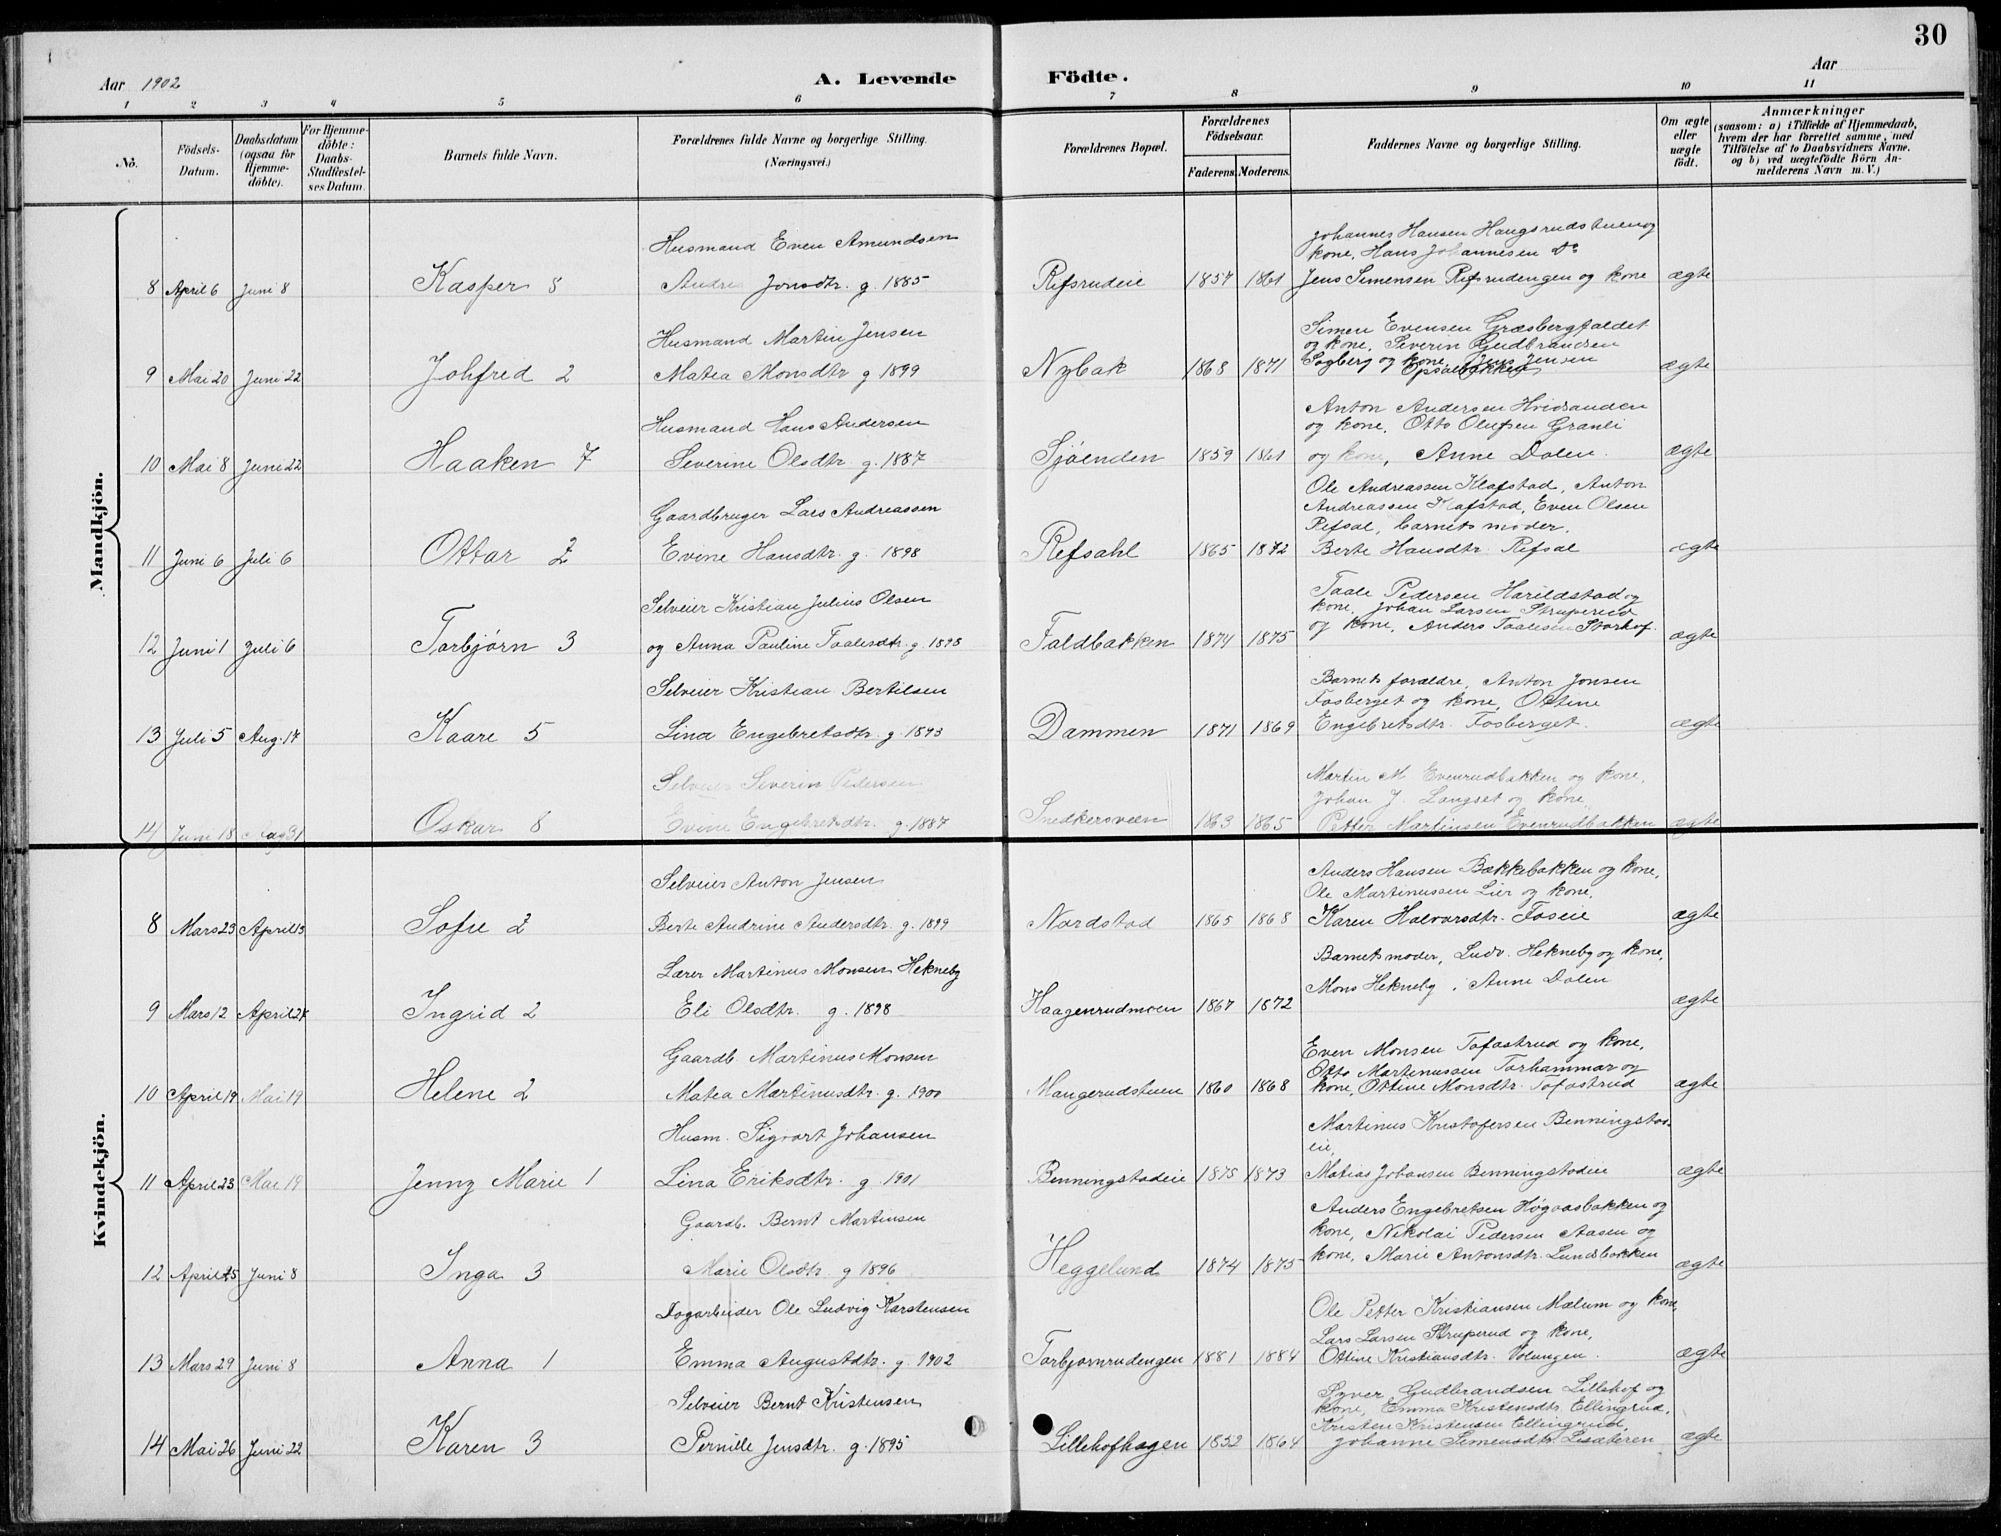 30
Aar 1902
A. Levende Födte.
Aar
1 2 3 4 5 6 7 8 9 10 11
No.
Födsels-Datum.
Daabsdatum (ogsaa for Hjemme-döbte).
For Hjemme-döbte: Daabs-Stadfæstel-ses Datum.
Barnets fulde Navn.
Forældrenes fulde Navne og borgerlige Stilling. (Næringsvei.)
Forældrenes Bopæl.
Forældrenes Födselsaar.
Faderens. Moderens.
Faddernes Navne og borgerlige Stilling.
Om ægte eller uægte födt.
Anmærkninger
(saasom: a) i Tilfælde af Hjemmedaab,
hvem der har forrettet samme, med
Tilföielse af to Daabsvidners Navne.
og b) ved uægtefödte Börn An-
melderens Navn m. V.)
Mandkjön.
Husmand Even Amundsen
Johannes Hansen Haugsrudstuen og
kone, Hans Johannesen Do
8 April 6 Juni 8 Kasper 8 Jonsdtr. g. 1885 Refsrudeie 1857 1861 Jens Simensen Refsrudengen og kone ægte
Husmand Martin Jensen
Simen Evensen Græsbergfaldet
og kone, Severin Gudbrandsen
9 Mai 20 Juni 22 Johfred 2 Matea Monsdtr g 1899 Nybak 1868 1871 Sogberg og kone, Jens Jensen ægte
Husmand Hans Andersen
Anton Andersen Hvidsanden
og kone, Otto Olufsen Granli
10 Mai 8 Juni 22 Haaken 7 Severine Olsdtr. g. 1887 Sjøenden 1859 1861 og kone, Anne Dolen. ægte
Gaardbruger Lars Andreassen
Ole Andreassen Klafstad, Anton
Andreassen Klafstad, Even Olsen
Refsal, barnets moder,
11 Juni 6 Juli 6 Ottar 2 Evine Hansdtr. g. 1898 Refsahl 1865 1872 Berte Hansdtr. Refsal ægte
Selveier Kristian Julius Olsen
Taale Pedersen Harildstad og
kone, Johan Larsen Struperud
12 Juni 1 Juli 6 Torbjørn 3 og Anna Pauline Taalesdtr. g. 1898 Faldbakken 1874 1875 og kone, Anders Taalesen Storhof. ægte
Selveier Kristian Bertilsen
Barnets forældre, Anton Jonsen
Fosberget og kone, Ottine
13 Juli 5 Aug. 17 Kaare 5 Lina Engebretsdtr. g. 1893 Dammen 1871 1869 Engebretsdtr. Fosberget. ægte
Selveier Severin Pedersen
Martin M. Evenrudbakken og kone,
Johan J. Langset og kone,
14 Juni 18 31 Oskar 8 Evine Engebretsdtr. g. 1887 Snedkersveen 1863 1865 Petter Martinsen Evenrudbakken ægte
Kvindekjön.
Selveier Anton Jensen
Anders Hansen Bækkebakken og kone,
Ole Martinussen Lier og kone,
8 Mars 23 April 13 Sofie 2 Berte Andrine Andersdtr. g. 1899 Nordstad 1865 1868 Karen Halvorsdtr. Foseie ægte
Lærer Martinus Monsen Hekneby
Barnets moder, Ludv. Hekneby og kone,
Mons Hekneby, Anne Dolen
9 Mars 12 April 21 Ingrid 2 Eli Olsdtr. g. 1898 Haagenrudmoen 1867 1872 ægte
Gaardb. Martinus Monsen
Even Monsen Tofastrud og kone,
Otto Martinussen Torhammar og
10 April 19 Mai 19 Helene 2 Matea Martinusdtr. g. 1900 Maugerudstuen 1860 1868 kone, Ottine Monsdtr. Tofastrud ægte
Husm. Sigvart Johansen
Martinus Kristofersen Benningstad-
eie,
11 April 23 Mai 19 Jenny Marie 1 Lina Eriksdtr. g. 1901 Benningstadeie 1875 1873 Matias Johansen Benningstadeie ægte
Gaardb. Bernt Martinsen
Anders Engebretsen Høgaasbakken og
kone, Nikolai Pedersen Aasen og
12 April 15 Juni 8 Inga 3 Marie Olsdtr. g 1896 Heggelund 1874 1875 kone, Marie Antonsdtr. Lundsbakken ægte
Dagarbeider Ole Ludvig Karstensen
Ole Petter Kristiansen Mælum og kone,
Lars Larsen Struperud og kone,
13 Mars 29 Juni 8 Anna 1 Emma Augustdtr. g. 1902 Torbjornrudengen 1881 1884 Ottine Kristiansdtr. Volungen. ægte
Selveier Bernt Kristensen
Syver Gudbrandsen Lillehof og
kone, Emma Kristensdtr. Ellingrud,
Kristen Kristensen Ellingrud,
14 Mai 26 Juni 22 Karen 3 Pernille Jensdtr. g. 1895 Lillehofhagen 1852 1864 Johanne Simensdtr. ægte